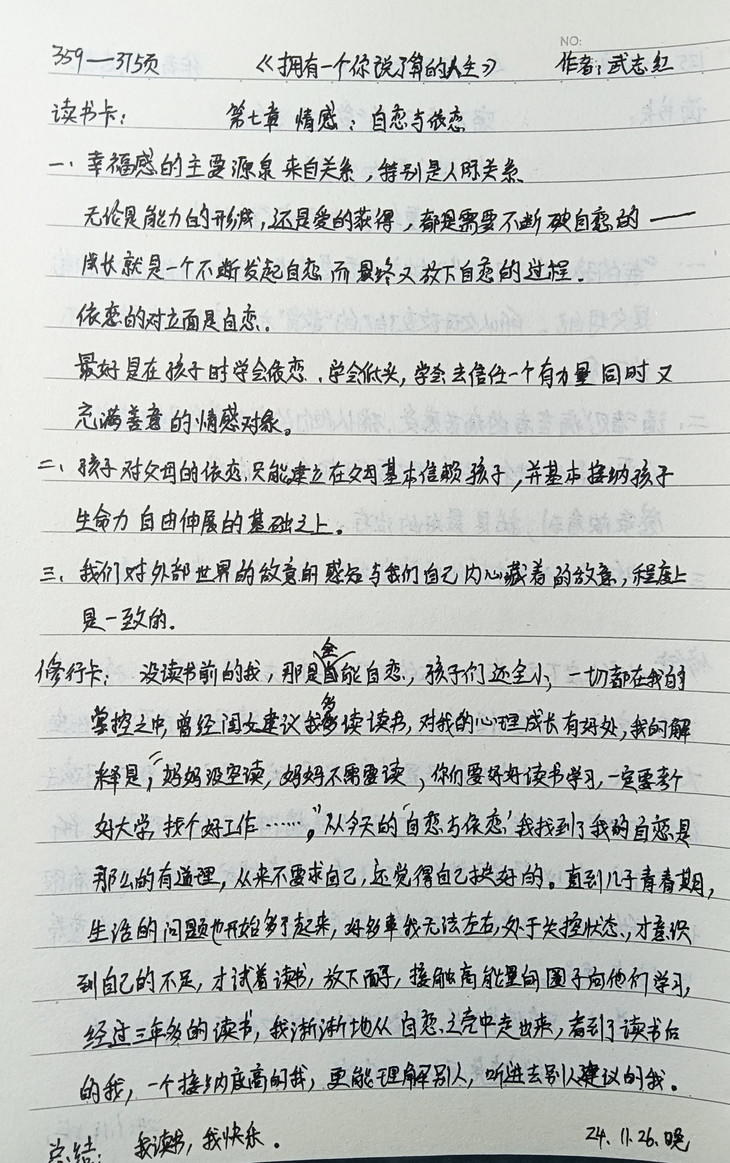 NO:
359—375页 《拥有一个你说了算的人生》 作者:武志红
读书卡: 第七章 情感:自恋与依恋
一、幸福感的主要源泉来自关系,特别是人际关系、
无论是能力的形成,还是爱的获得,都是需要不断破自恋的——
成长就是一个不断发起自恋而最终又放下自恋的过程.
依恋的对立面是自恋.
最好是在孩子时学会依恋、学会低头,学会去信任一个有力量同时又
充满善意的情感对象。
二、孩子对父母的依恋,只能建立在父母基本信赖孩子,并基本接纳孩子
生命力自由伸展的基础之上。
三、我们对外部世界的敌意的感知与我们自己内心藏着的敌意,程度上
是一致的.
修行卡: 没读书前的我,那是全能自恋,孩子们还全小,一切都在我的
掌控之中,曾经闺女建议我多读读书,对我的心理成长有好处,我的解
释是;“妈妈没空读,妈妈不需要读,你们要好好读书学习,一定要考个
好大学,找个好工作……。”从今天的‘自恋与依恋’我找到了我的自恋是
那么的有道理,从来不要求自己,还觉得自己挺好的。直到儿子青春期,
生活的问题也开始多了起来,好多事我无法左右,处于失控状态,才意识
到自己的不足,才试着读书,放下面子,接触高能量的圈子向他们学习,
经过三年多的读书,我渐渐地从自恋之壳中走出来,看到了读书后
的我,一个接纳度高的我,更能理解别人,听进去别人建议的我。
总结: 我读书,我快乐. 24.11.26.晚